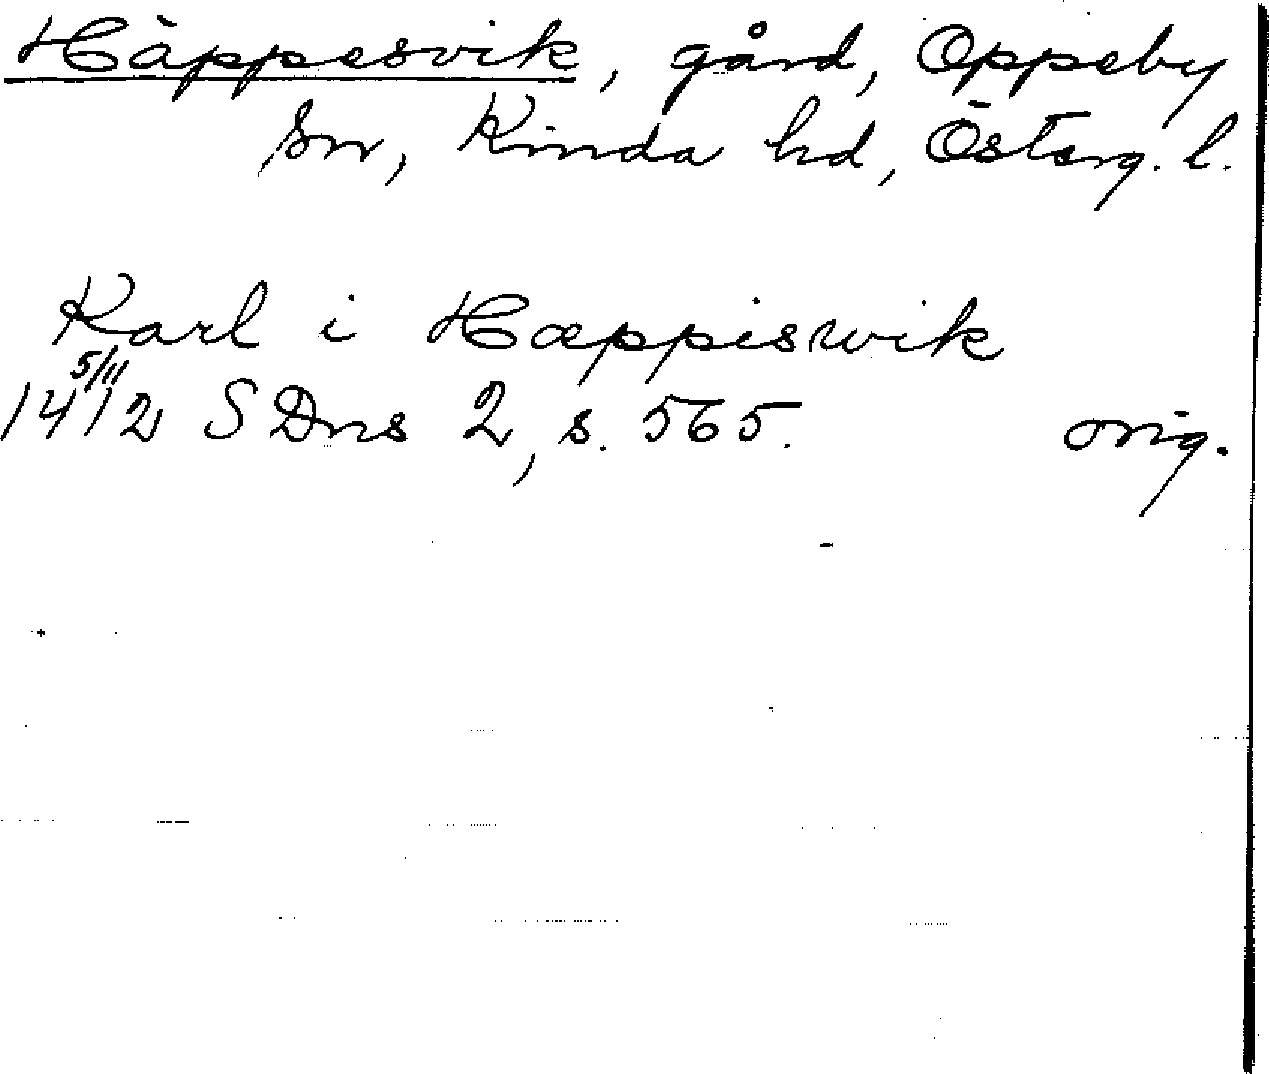 Häppesvik, gård, Oppeby
sn, Kinda hd, Österg. l.
Karl i Hæppiswik
5/11
1412 SDns 2, s. 565. orig.